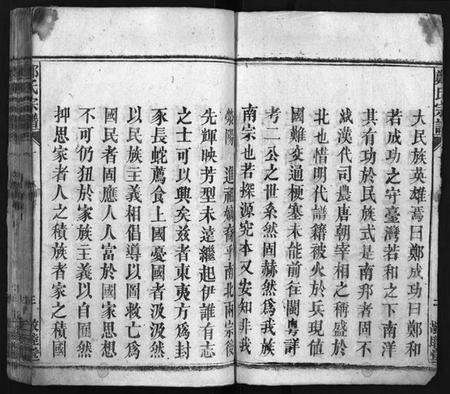 大民族英雄焉曰鄭成功曰鄭和
若成功之守臺灣若和之下南洋
其有功於民族式是南邦者固不
減漢代司農唐朝宰相之稱盛於
北也惜明代譜籍被火於兵現值
國難交通梗塞未能前往閩粵詳
考二公之世系然固赫然爲我族
南宗也者探源究本又安知非我
滎陽 遺祖 南北兩宗後
先輝映芳型未遠繼起伊誰有志
之士可以興矣茲者東夷方爲封
豕長蛇薦食上國憂國者汲汲然
以民族主義相倡導以圖救亡爲
國民者固應人人富於國家思想
不可仍狃於家族主義以自囿然
抑思家者人之積族者家之積國
鄭氏宗譜